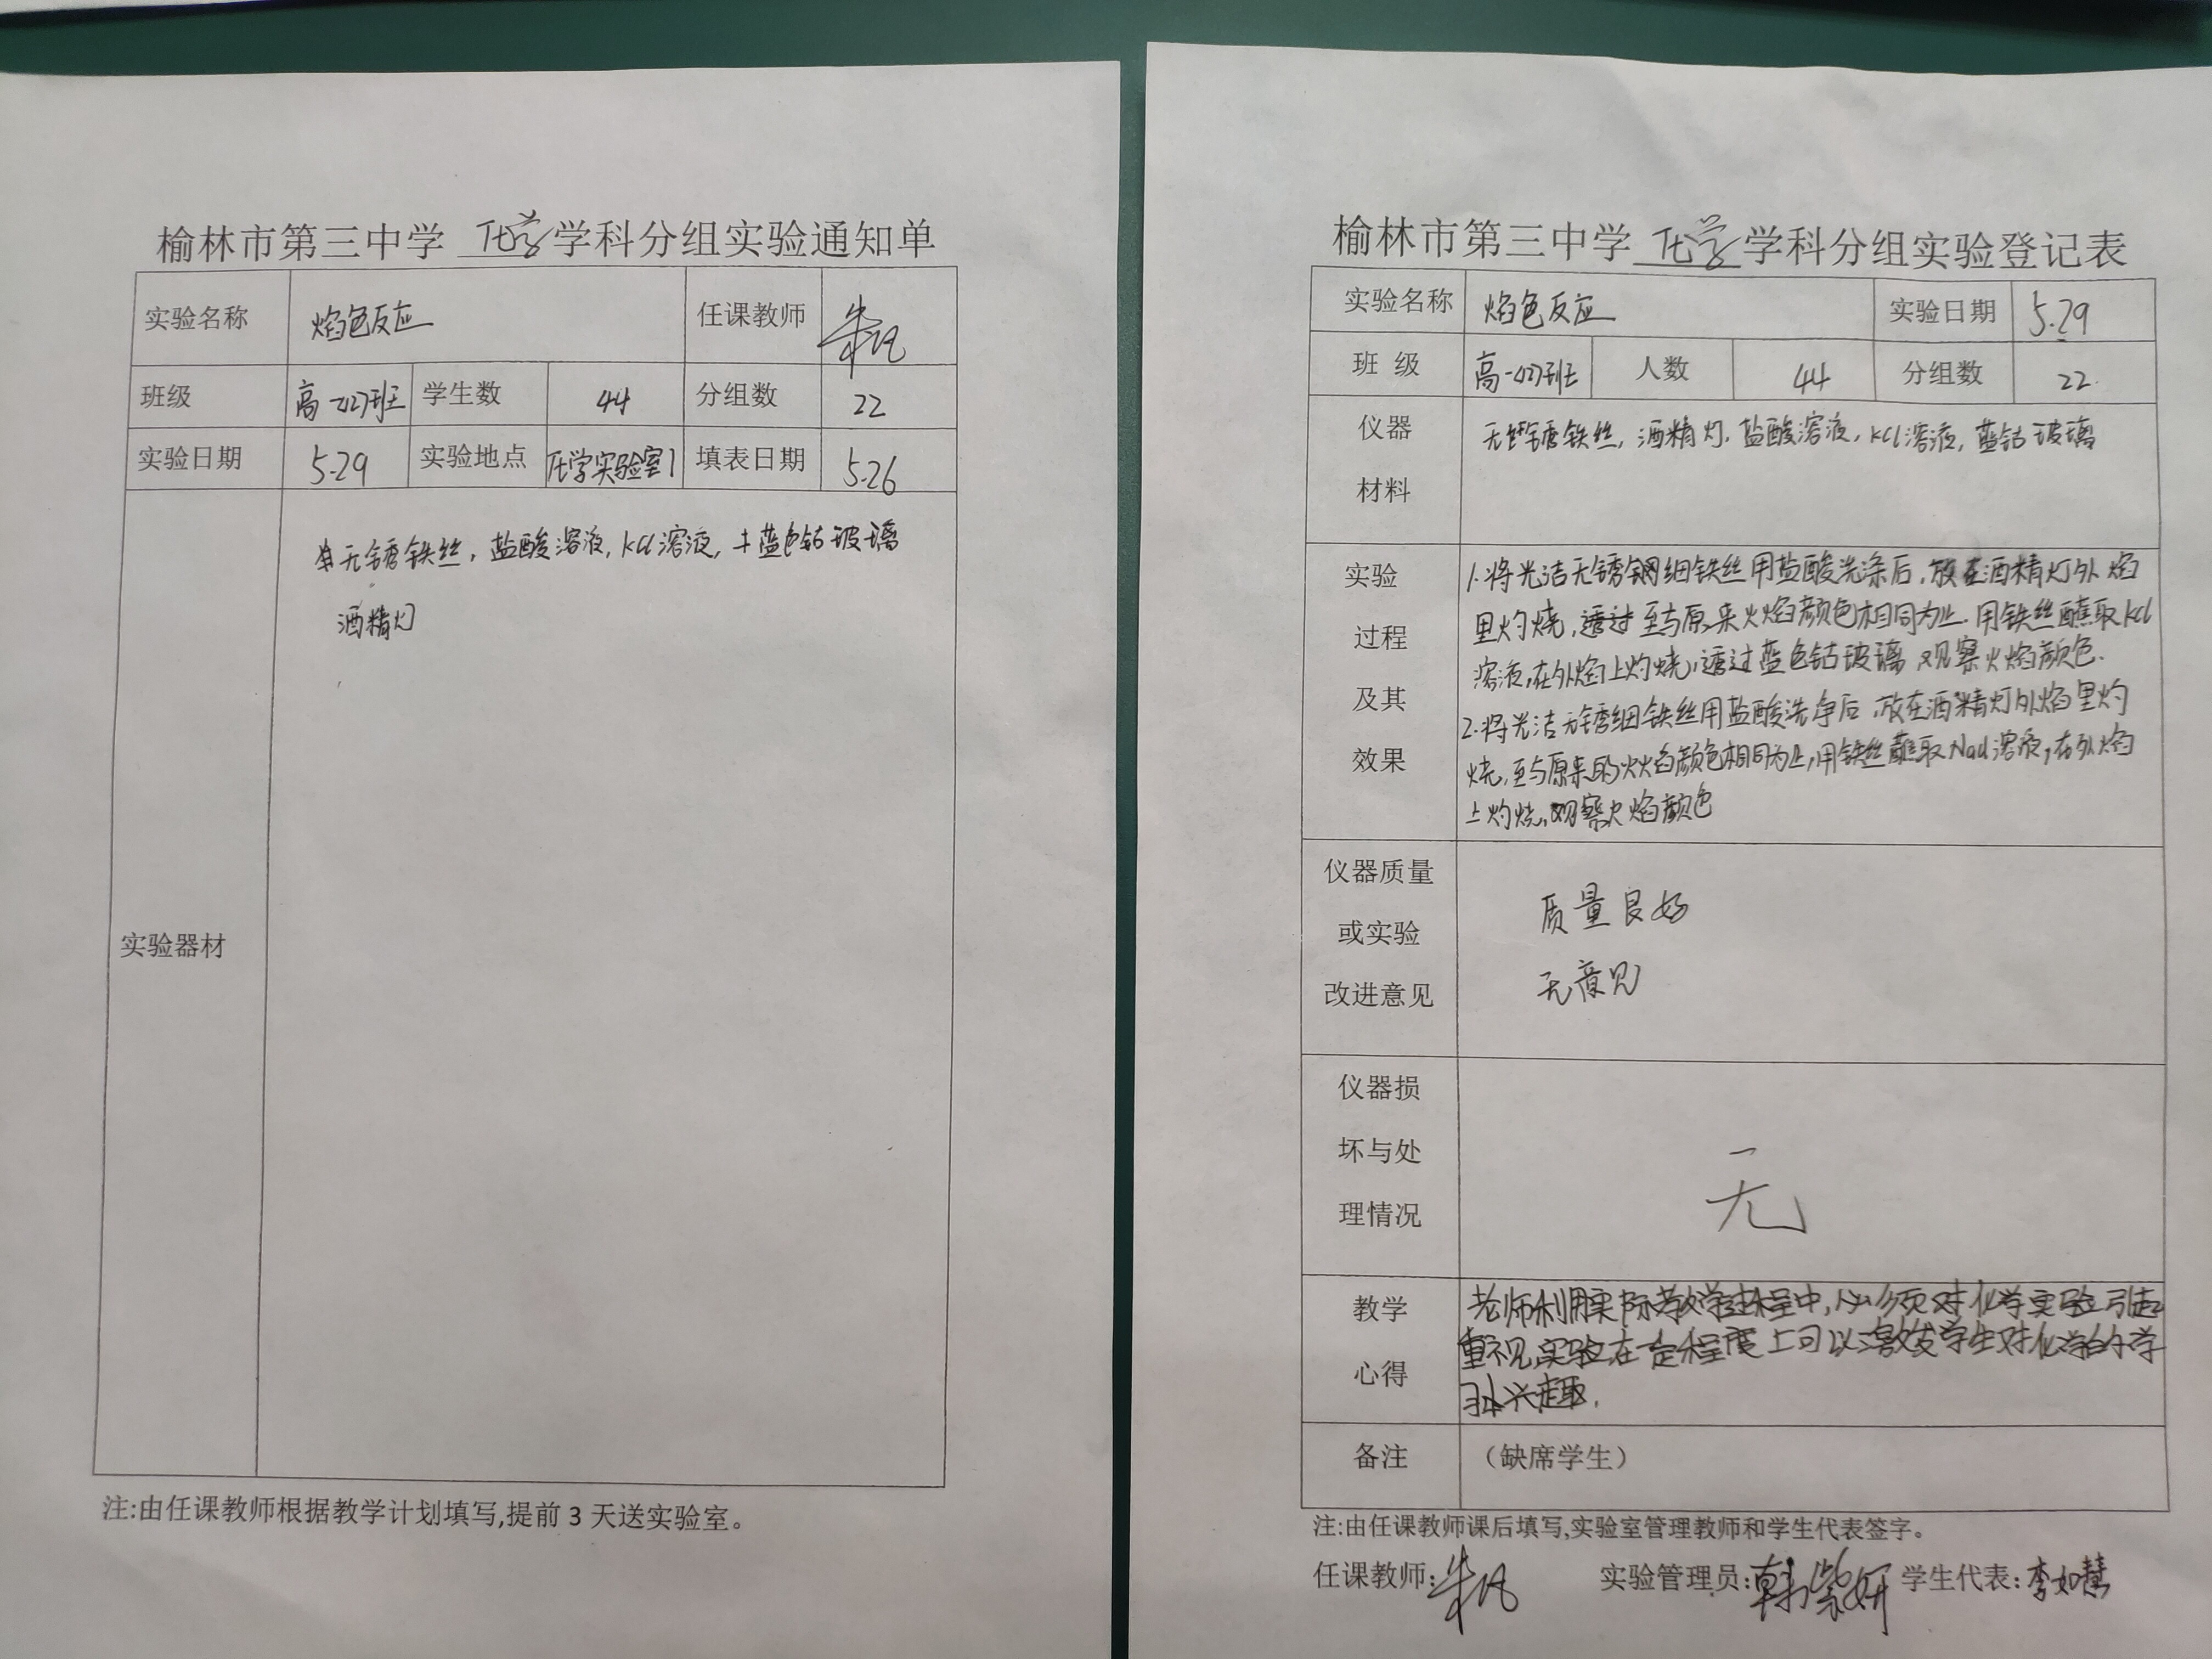 榆林市第三中学 化学 学科分组实验通知单
实验名称 焰色反应 任课教师 朱凡
班级 高一(2)班 学生数 44 分组数 22
实验日期 5.29 实验地点 化学实验室1 填表日期 5.26
实验器材
无锈铁丝，盐酸溶液，KCl溶液，蓝色钴玻璃
酒精灯
注:由任课教师根据教学计划填写,提前3天送实验室。
榆林市第三中学 化学 学科分组实验登记表
实验名称 焰色反应 实验日期 5.29
班 级 高一(2)班 人数 44 分组数 22
仪器
材料
无锈铁丝，酒精灯，盐酸溶液，KCl溶液，蓝钴玻璃
实验
过程
及其
效果
1.将光洁无锈钢细铁丝用盐酸洗涤后，放在酒精灯外焰
里灼烧，透过至与原来火焰颜色相同为止.用铁丝蘸取KCl
溶液，在外焰上灼烧，透过蓝色钴玻璃观察火焰颜色.
2.将光洁无锈细铁丝用盐酸洗净后，放在酒精灯外焰里灼
烧，至与原来的火焰颜色相同为止，用铁丝蘸取NaCl溶液，在外焰
上灼烧，观察火焰颜色
仪器质量
或实验
改进意见
质量良好
无意见
仪器损
坏与处
理情况
无
教学
心得
老师利用实际教学过程中，必须对化学实验引起
重视，实验在一定程度上可以激发学生对化学的学
习兴趣.
备注 （缺席学生）
注:由任课教师课后填写,实验室管理教师和学生代表签字。
任课教师:朱凡 实验管理员:韩紫妍 学生代表:李如慧